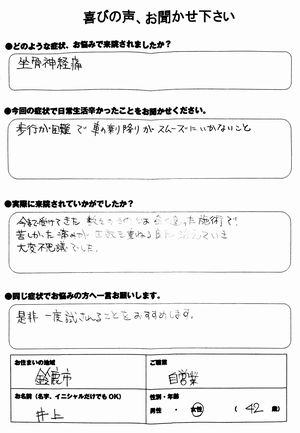 喜びの声、お聞かせ下さい
●どのような症状、お悩みで来院されましたか？
坐骨神経痛
●今回の症状で日常生活辛かったことをお聞かせください。
歩行が困難で車の乗り降りがスムーズにいかないこと
●実際に来院されていかがでしたか？
今まで受けてきた 施術で
苦しかった痛みが回数を重ねる
大変不思議でした。
●同じ症状でお悩みの方へ一言お願いします。
是非一度試されることをおすすめします。
お住まいの地域
ご職業
鈴鹿市
自営業
お名前（名字、イニシャルだけでもOK）
性別・年齢
井上
男性 ・ 女性 （ 42 歳）